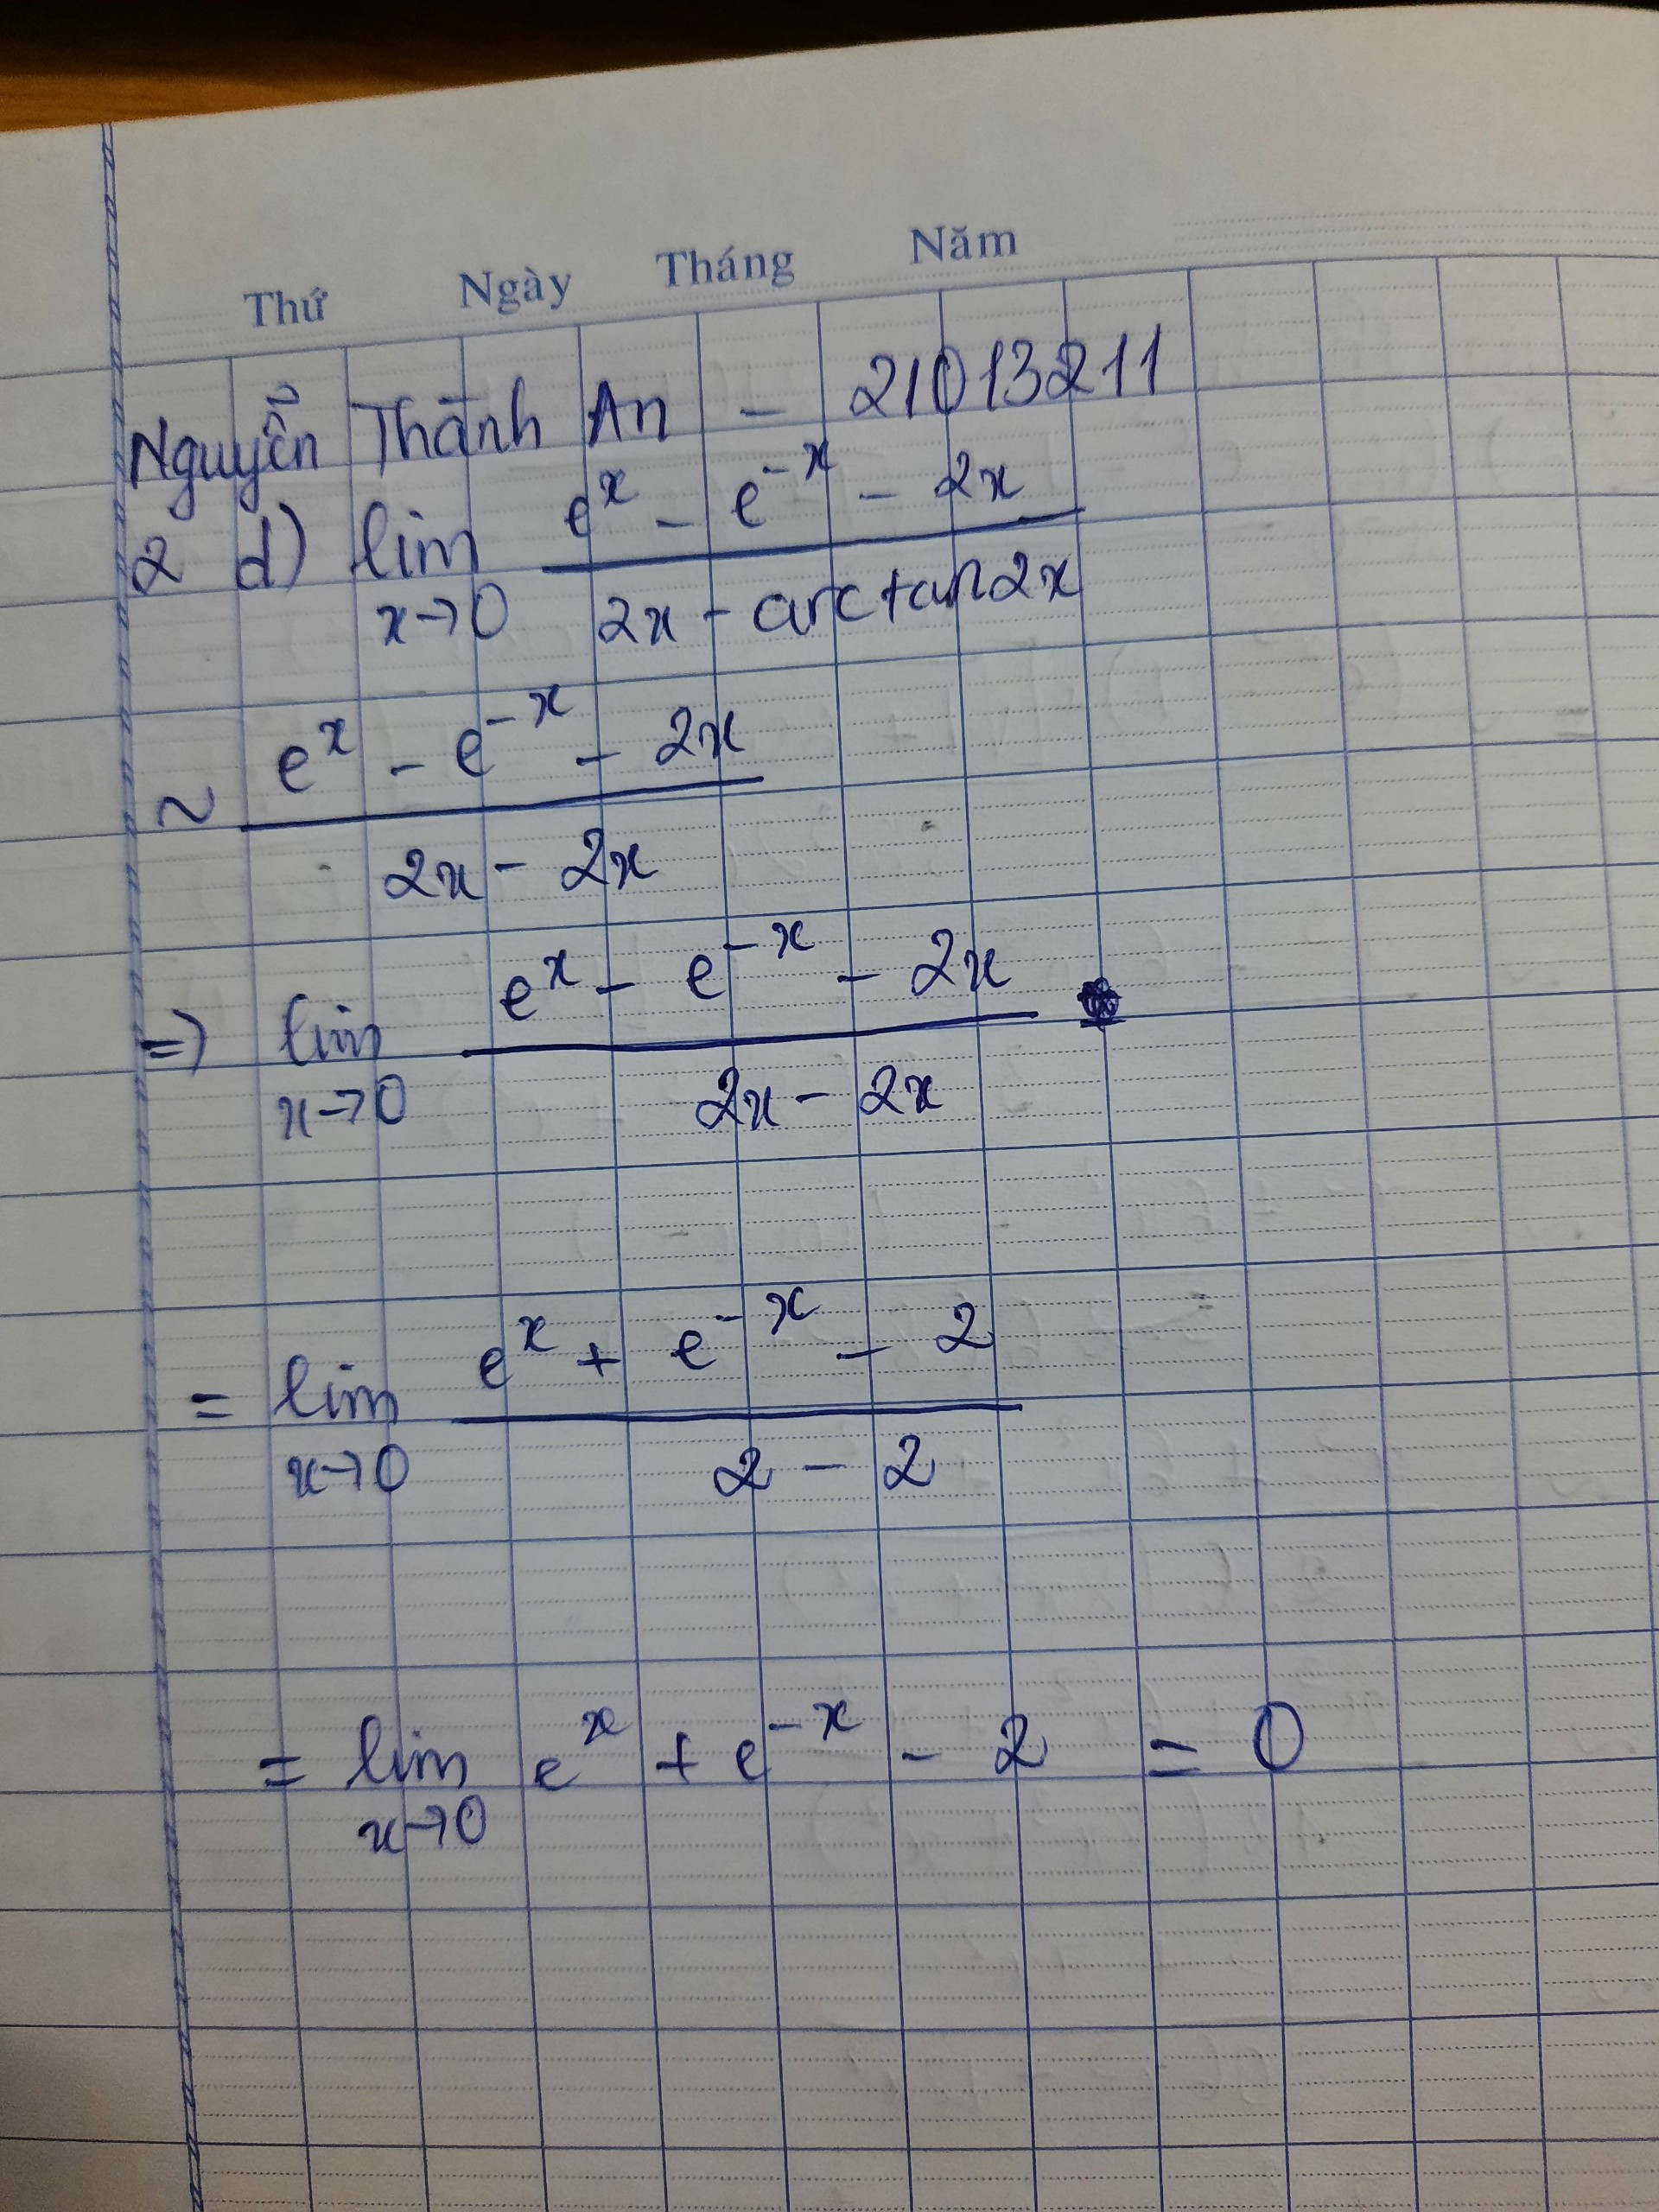 Thứ Ngày Tháng Năm
Nguyễn Thành An - 21013211
2 d) lim x→0 (e^x - e^-x - 2x) / (2x - arctan2x)
~ (e^x - e^-x - 2x) / (2x - 2x)
=) lim x→0 (e^x - e^-x - 2x) / (2x - 2x)
= lim x→0 (e^x + e^-x - 2) / (2 - 2)
= lim x→0 e^x + e^-x - 2 = 0